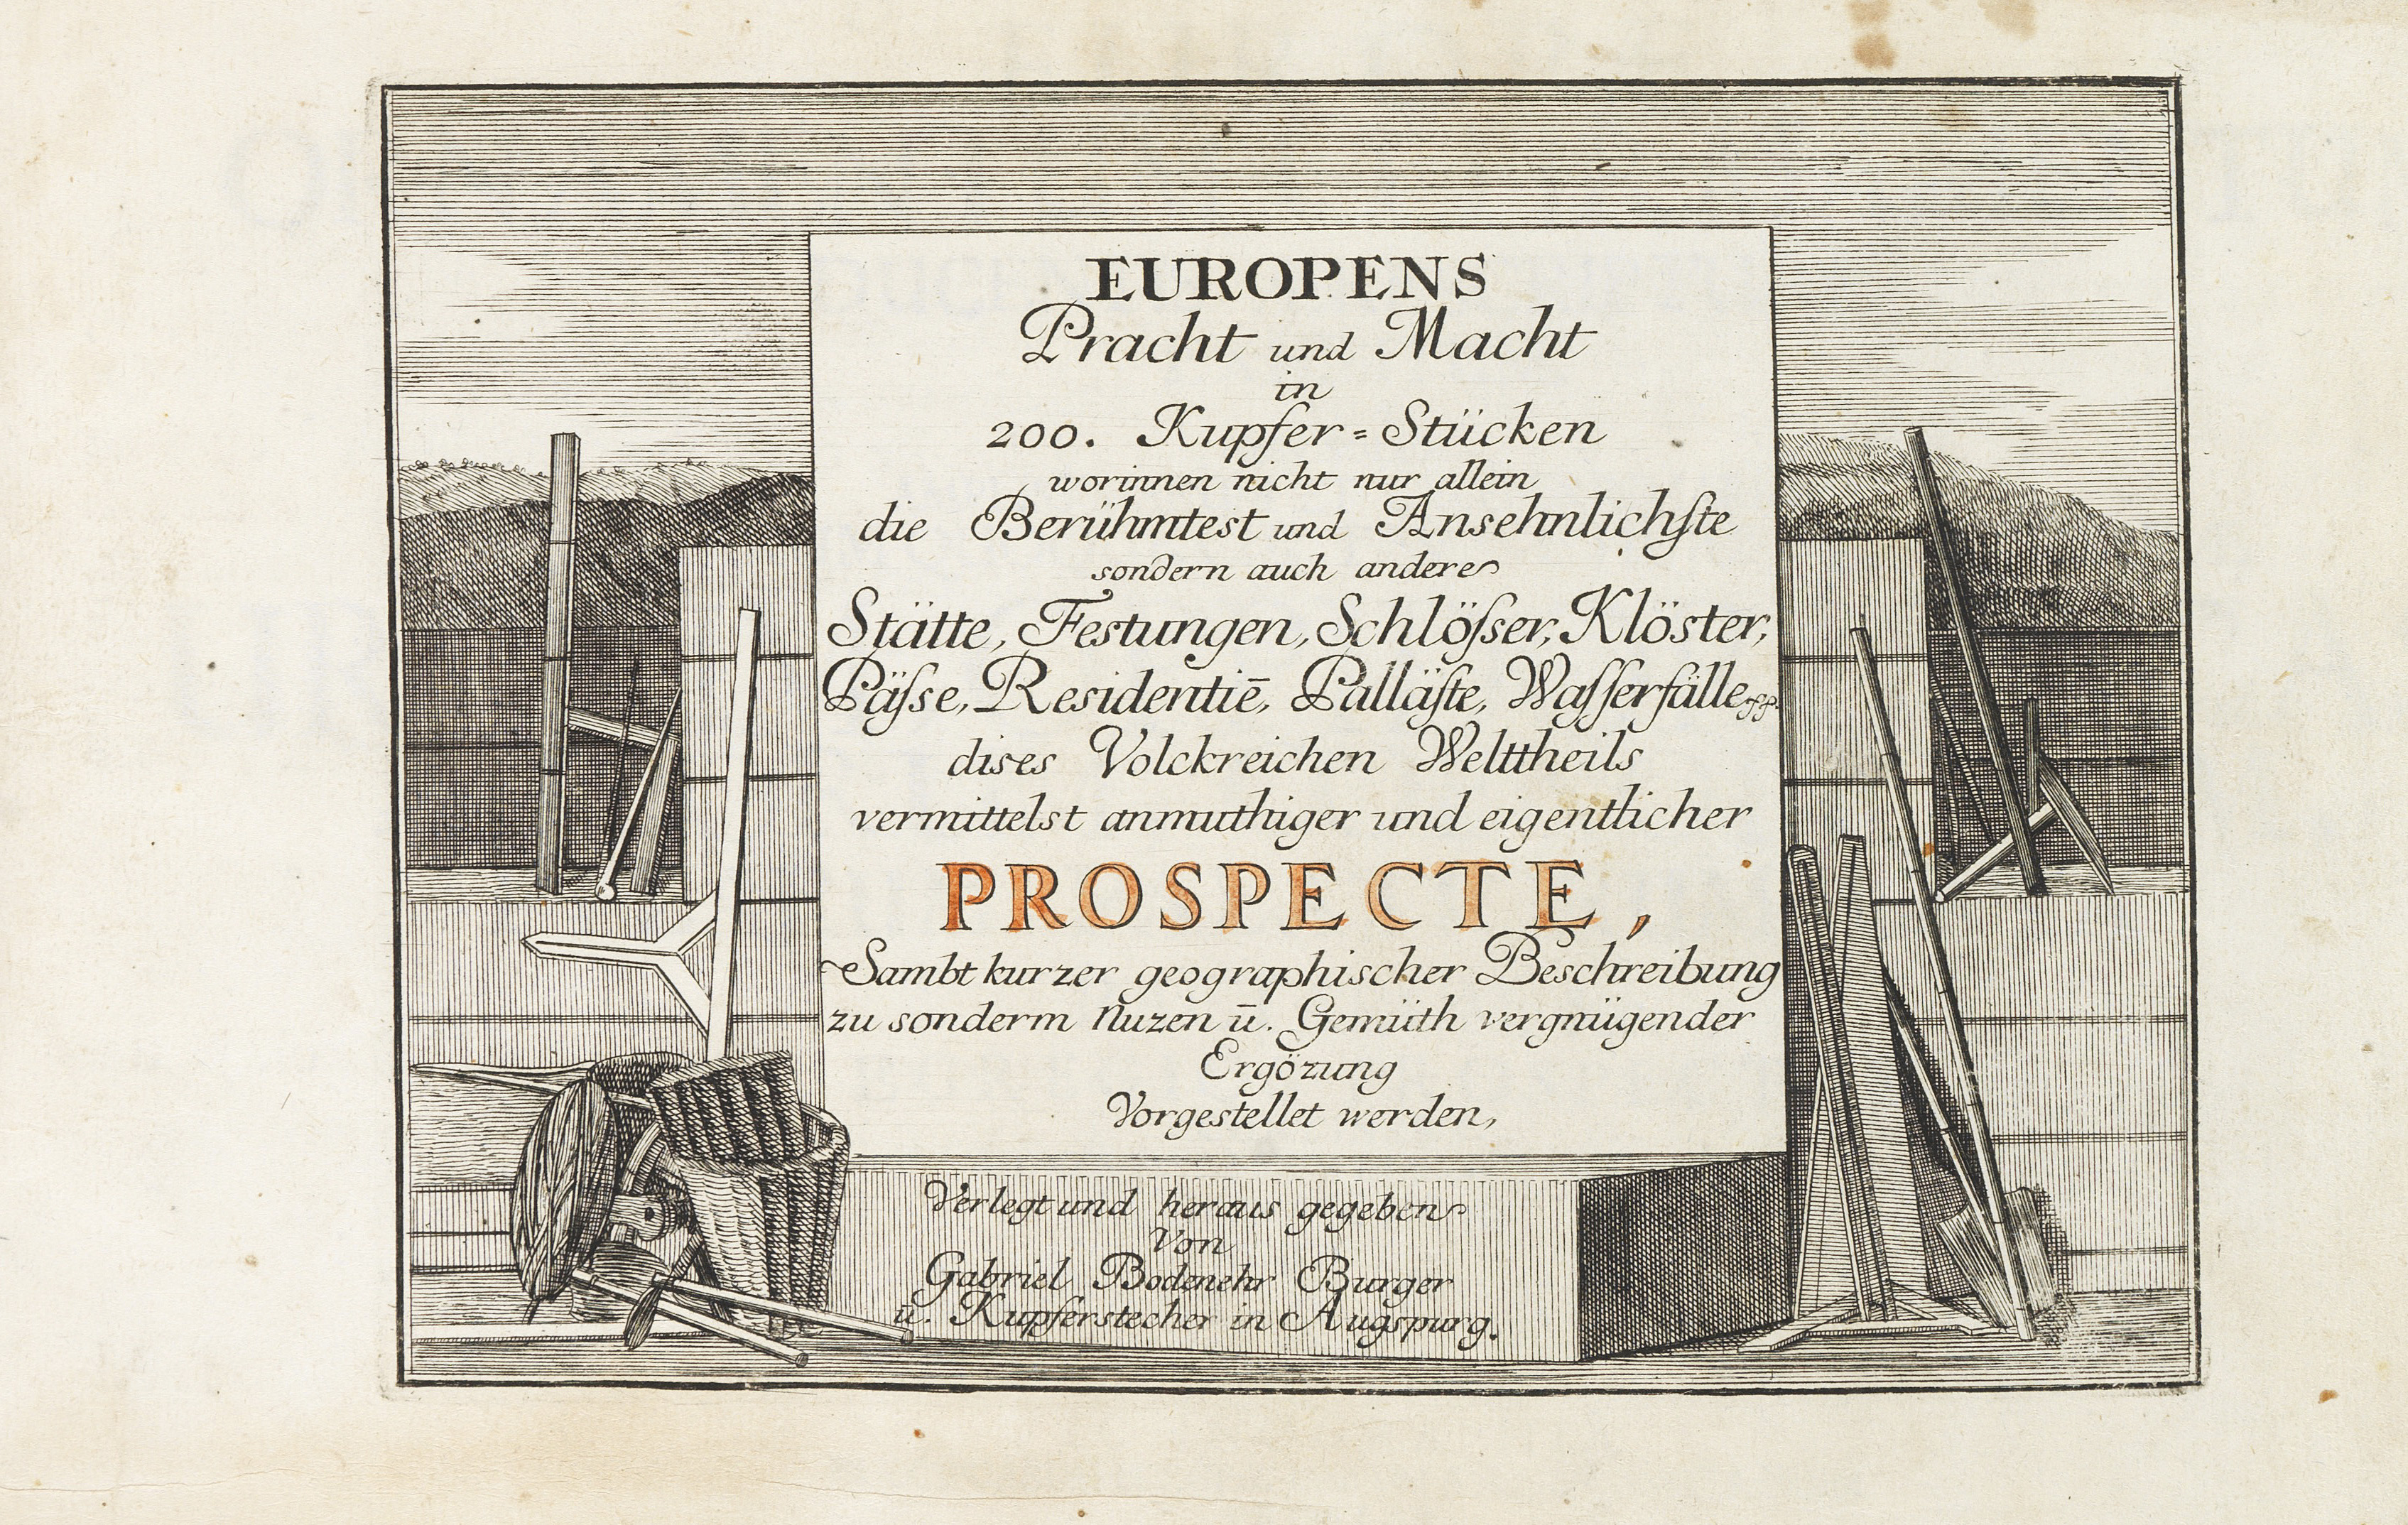 EUROPENS
Pracht und Macht
in
200. Kupfer=Stücken
worinnen nicht nur allein
die Berühmtest und Ansehnlichſte
sondern auch andere
Stätte, Festungen, Schlöſser, Klöster,
Päſse, Residentiē, Palläſte, Waſſerfälle
dises Volckreichen Welttheils
vermittelst anmuthiger und eigentlicher
PROSPECTE,
Sambt kurzer geographischer Beschreibung
zu sonderm Nuzen ū. Gemüth vergnügender
Ergözung
Vorgestellet werden,
Verlegt und heraus gegeben
Von
Gabriel Bodenehr Burger
ū. Kupferstecher in Augspurg.